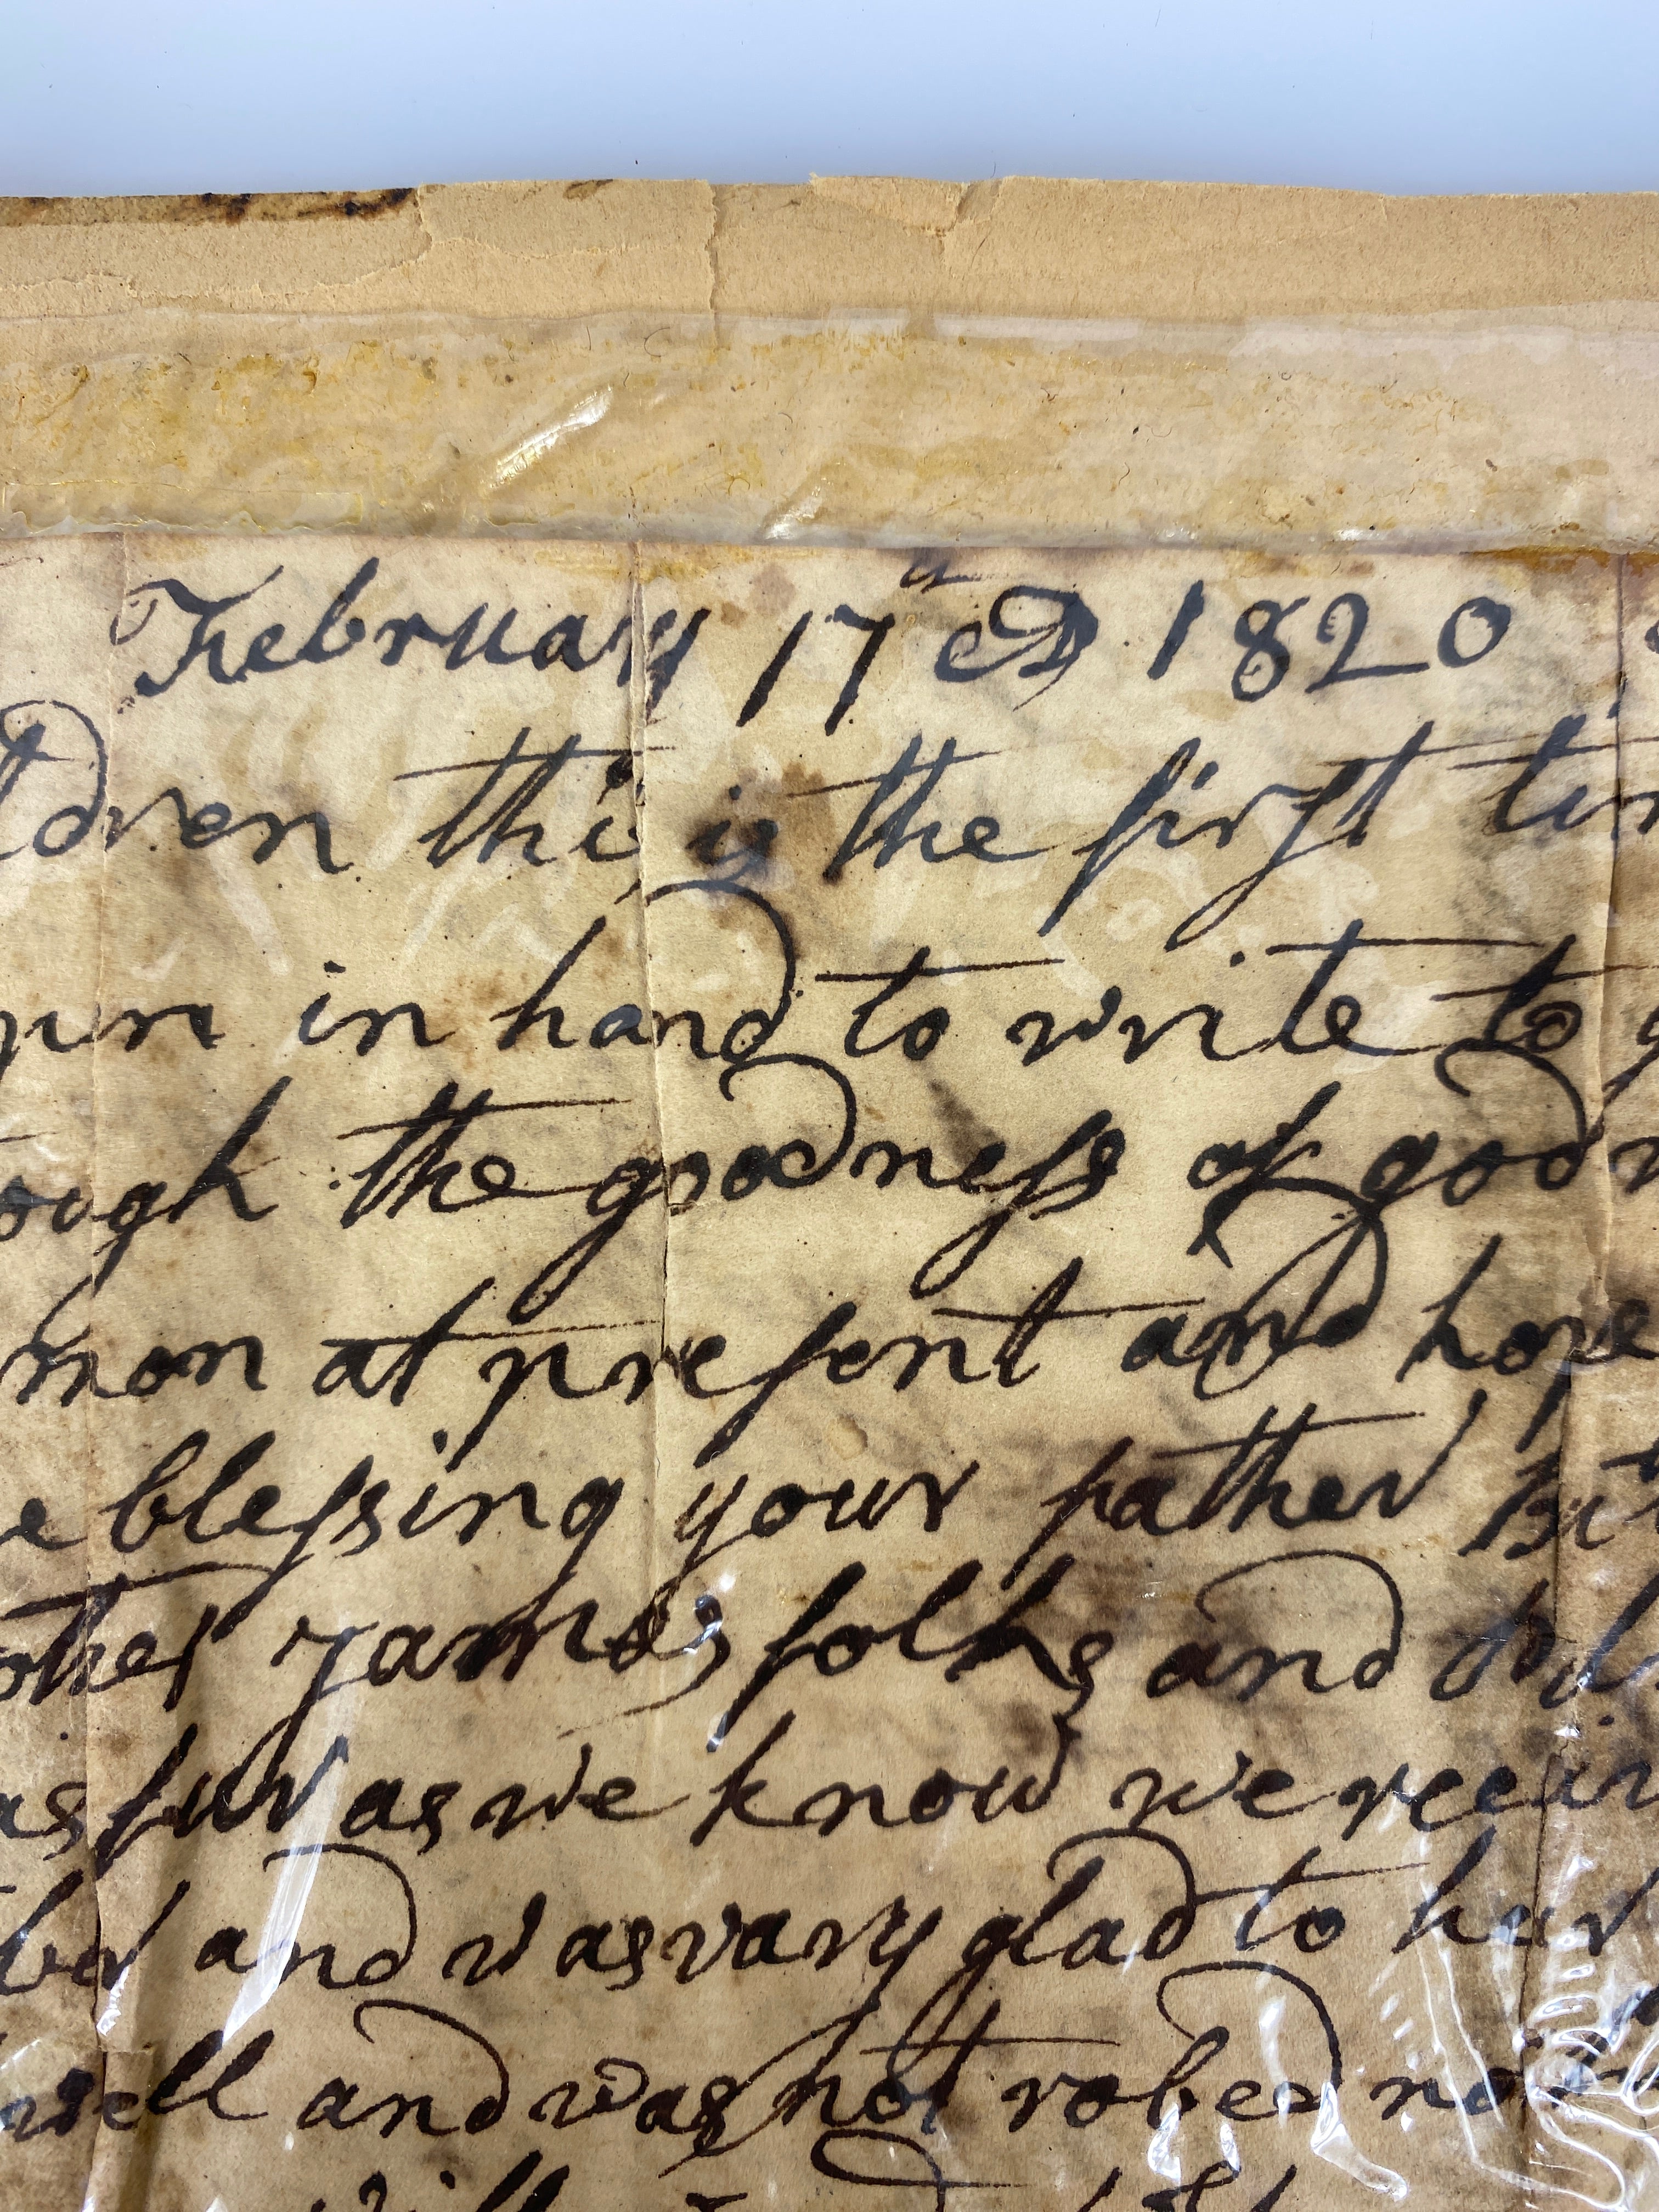 February 17th AD 1820
ldren this is the first tim
pen in hand to write to y
ough the goodness of god
mon at present and hope
e blessing your father But
other James folks and
as fur as we know we receiv
ber and was vary glad to hear
well and was not robed nor